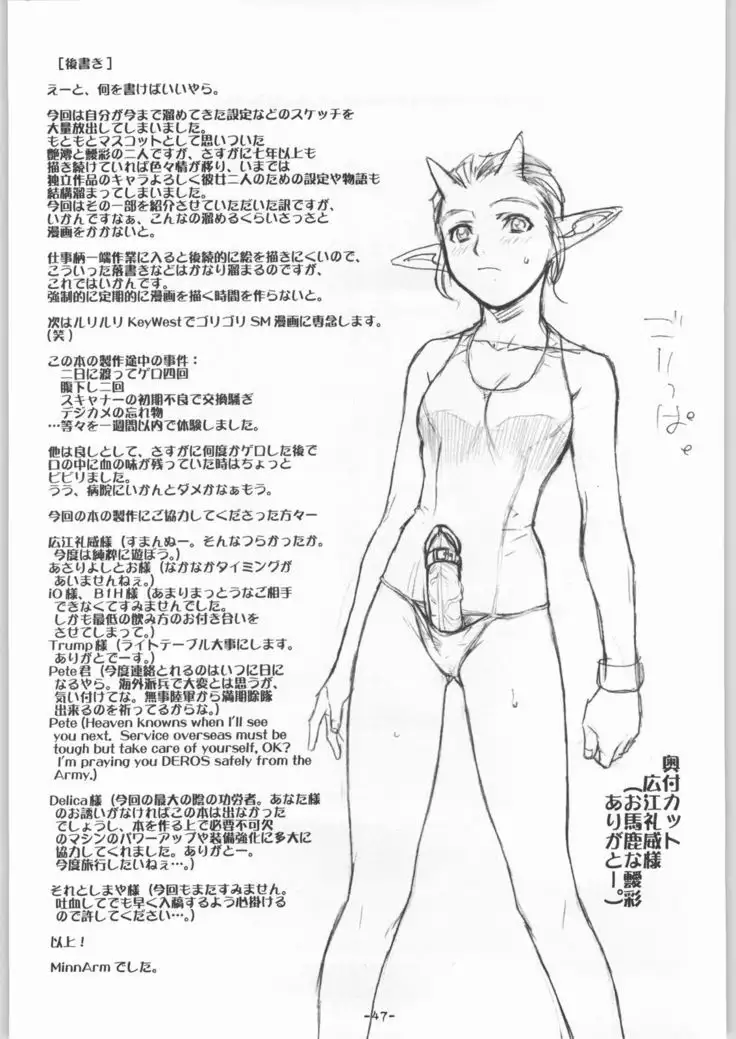 [後書き]
えーと、何を書けばいいやら。
今回は自分が今まで溜めてきた設定などのスケッチを
大量放出してしまいました。
もともとマスコットとして思いついた
艶澪と靉彩の二人ですが、さすがに七年以上も
描き続けていれば色々情が移り、いまでは
独立作品のキャラよろしく彼女二人のための設定や物語も
結構溜まってしまいました。
今回はその一部を紹介させていただいた訳ですが、
いかんですなぁ、こんなの溜めるくらいさっさと
漫画をかかないと。
仕事柄一端作業に入ると後続的に絵を描きにくいので、
こういった落書きなどはかなり溜まるのですが、
これではいかんです。
強制的に定期的に漫画を描く時間を作らないと。
次はルリルリKeyWestでゴリゴリSM漫画に専念します。
(笑)
この本の製作途中の事件:
二日に渡ってゲロ四回
腹下し二回
スキャナーの初期不良で交換騒ぎ
デジカメの忘れ物
…等々を一週間以内で体験しました。
他は良しとして、さすがに何度かゲロした後で
口の中に血の味が残っていた時はちょっと
ビビリました。
うう、病院にいかんとダメかなぁもう。
今回の本の製作にご協力してくださった方々ー
広江礼威様(すまんぬー。そんなつらかったか。
今度は純粋に遊ぼう。)
あさりよしとお様(なかなかタイミングが
あいませんねぇ。)
iO様、B1H様(あまりまっとうなご相手
できなくてすみませんでした。
しかも最低の飲み方のお付き合いを
させてしまって。)
Trump様(ライトテーブル大事にします。
ありがとでーす。)
Pete君(今度連絡とれるのはいつに日に
なるやら。海外派兵で大変とは思うが、
気い付けてな。無事陸軍から満期除隊
出来るのを祈ってるからな。)
Pete (Heaven knowns when I'll see
you next. Service overseas must be
tough but take care of yourself, OK?
I'm praying you DEROS safely from the
Army.)
Delica様(今回の最大の陰の功労者。あなた様
のお誘いがなければこの本は出なかった
でしょうし、本を作る上で必要不可欠
のマシンのパワーアップや装備強化に多大に
協力してくれました。ありがとー。
今度旅行したいねぇ…。)
それとしまや様(今回もまたすみません。
吐血してでも早く入稿するよう心掛ける
ので許してください…。)
以上!
MinnArmでした。
ごりっぱ。
奥付カット
広江礼威様
(お馬鹿な靉彩
ありがとー。)
-47-